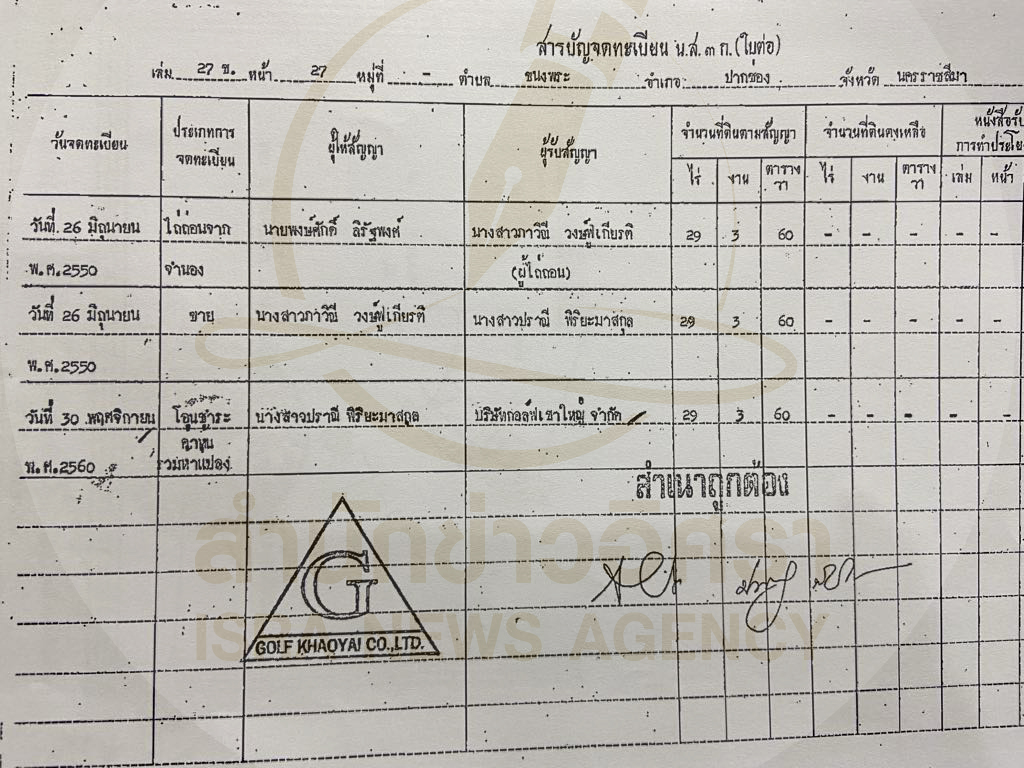 สารบัญจดทะเบียน น.ส.๓ ก.(ใบต่อ)
เล่ม 27 ข. หน้า 27 หมู่ที่ - ตำบล ขนงพระ อำเภอ ปากช่อง จังหวัด นครราชสีมา
วันจดทะเบียน ประเภทการจดทะเบียน ผู้ให้สัญญา ผู้รับสัญญา จำนวนที่ดินตามสัญญา จำนวนที่ดินคงเหลือ หนังสือรับ การทำประโย
ไร่ งาน ตารางวา ไร่ งาน ตารางวา เล่ม หน้า
วันที่ 26 มิถุนายน ไถ่ถอนจาก นายพงษ์ศักดิ์ ลิรัฐพงศ์ นางสาวภาวิณี วงษ์ฟูเกียรติ 29 3 60 - - - - -
พ.ศ.2550 จำนอง (ผู้ไถ่ถอน)
วันที่ 26 มิถุนายน ขาย นางสาวภาวิณี วงษ์ฟูเกียรติ นางสาวปราณี พิริยะมาสกุล 29 3 60 - - - - -
พ.ศ.2550
วันที่ 30 พฤศจิกายน โอนชำระ นางสาวปราณี พิริยะมาสกุล บริษัทกอล์ฟเขาใหญ่ จำกัด 29 3 60 - - - - -
ค่าหุ้น
พ.ศ.2560 รวมห้าแปลง
สำเนาถูกต้อง
สำนักข่าวอิศรา
G
ISRA NEWS AGENCY
GOLF KHAOYAI CO.,LTD.